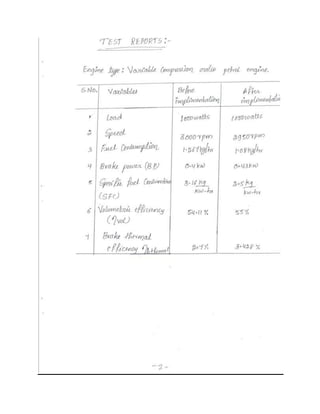 TEST REPORTS:-
Engine type: Variable Compression ratio petrol engine.
S.No. Variables Before implementation After implementation
1 Load 1000 watts 1000 watts
2 Speed 3000 rpm 2950 rpm
3 Fuel Consumption 1.26 kg/hr 1.08 kg/hr
4 Brake power (B.P) 0.4 kW
5 Specific fuel Consumption kg/kw-hr 2.5 kg/kw-hr
(SFC)
6 Volumetric efficiency 54.11 % 55 %
(ηvol)
7 Brake thermal
efficiency 2.7 % 3.428 %
-2-